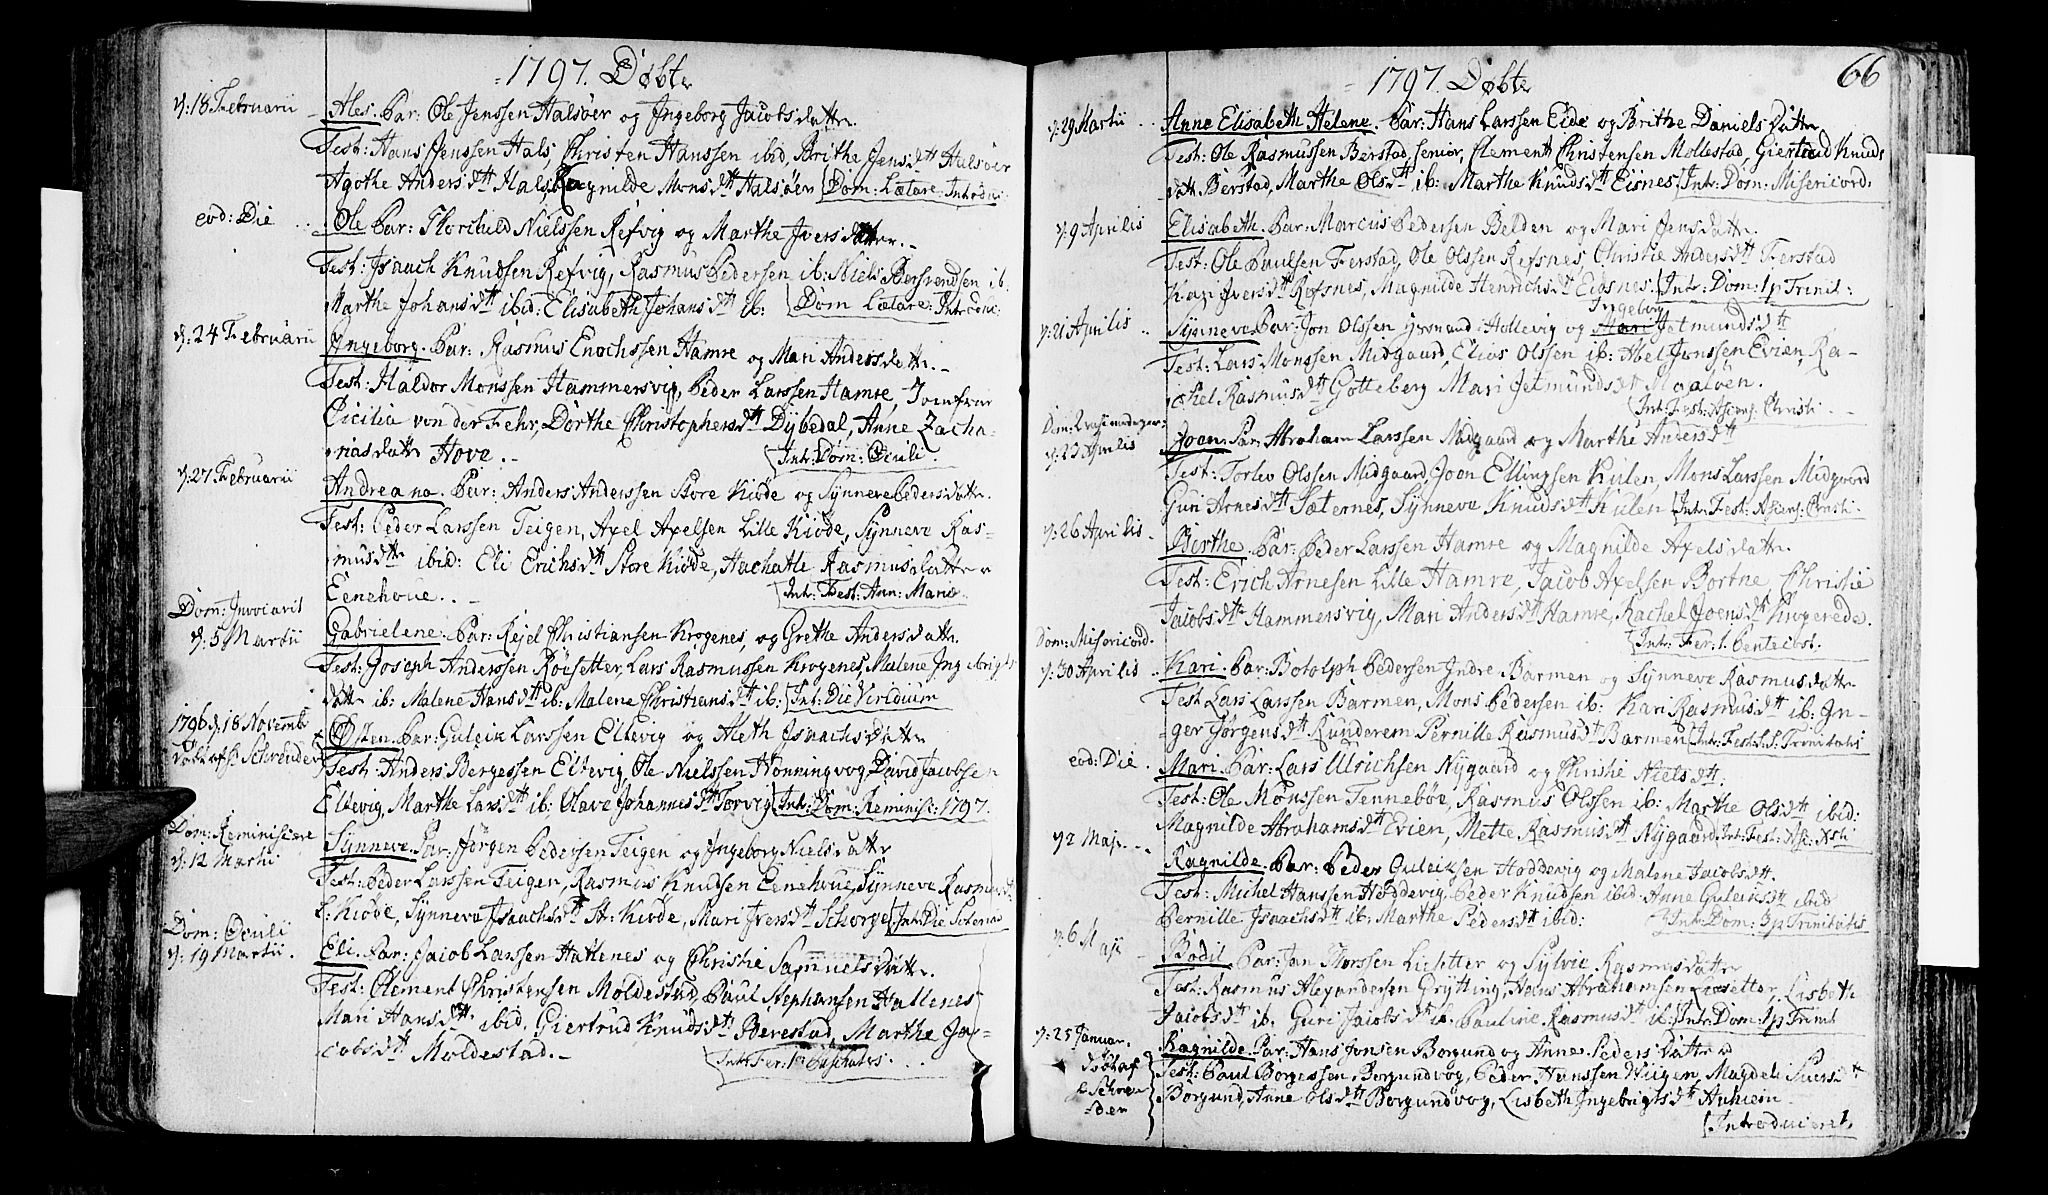 1797. Døbte
d: 18 Februarii
Ales. Par: Ole Jenssen Halsøer og Ingeborg Jacobsdatter.
Test: Hans Jenssen Hals, Christen Hanssen ibid, Brithe Jensdtt Halsøer
Agothe Andersdtt Hals, Ragnilde Monsdtt Halsøer Dom: Lætare: Introduc:
eod: Die
Ole Par: Thorchild Nielssen Refvig og Marthe Iversdatter.
Test: Isaach Knudsen Refvig, Rasmus Pedersen ib: Niels Bersvendsen ib:
Marthe Johansdtt ibid: Elisabeth Johansdtt ib: Dom Lætare: Introduc:
d: 24 Februarii
Ingeborg. Par: Rasmus Enochssen Hamre og Mari Andersdatter.
Test: Haldor Monssen Hammersvig, Peder Larssen Hamre, Jomfrue
Cicilia von der Fehr, Dorthe Christophersdtt Dybedal, Anne Zacha-
riasdatter Hove.
Int: Dom: Oculi.
d: 27 Februarii
Andreana. Par: Anders Anderssen Store Kiøde og Synneve Pedersdatter.
Test: Peder Larssen Teigen, Axel Axelsen Lille Kiøde, Synneve Ras-
musdtt ibid: Eli Erichsdtt Store Kiøde, Hachatle Rasmusdatter
Eenehoue.
Int: Fest: Ann: Mariæ
Dom: Invocavit
d: 5 Martii
Gabrielene. Par: Rejel Christiansen Krogenes, og Grethe Andersdatter.
Test: Joseph Anderssen Röesetter, Lars Rasmussen Krogenes, Malene Ingebrigts
datter ib: Malene Hansdtt ib: Malene Christiansdtt ib: Int: Die Viridium
1796 d. 18 Novemb
døbt af Hr Schreuder
Østen. Par: Guleik Larssen Eltevig og Aleth Isaachsdatter
Test: Anders Bergessen Eltevig, Ole Nielssen Honningvog David Jacobsen
Eltevig, Marthe Larsdtt ib: Olave Johannesdtt Torvig Int: Dom: Reminisc: 1797.
Dom: Reminiscere
d: 12 Martii
Synneve. Par: Jørgen Pedersen Teigen og Ingeborg Nielsdatter
Test: Peder Larssen Teigen, Rasmus Knudsen Eenehoue Synneve Rasmusdtt
L: Kiøde, Synneva Isaachsdtt St: Kiøde, Mari Iversdtt Schorge Int: Die
Dom: Oculi
d: 19 Martii.
Eli. Par: Jacob Larssen Hattenes og Christie Samuelsdatter.
Test: Clement Christensen Moldestad, Paul Stephansen Hattenes
Mari Hansdtt ibid, Giertrud Knudsdtt Berestad Marthe Ja-
cobsdtt Moldestad.
Int: Fer: 1 Paschatos.
1797. Døbte
66
d: 29 Martii
Anne Elisabeth Helene. Par: Hans Larssen Eide og Brithe Danielsdatter
Test: Ole Rasmussen Berstad, senior, Clement Christensen Mollestad, Giertrud Knuds
datt. Berstad, Marthe Olsdtt ib: Marthe Knudsdtt Eisnes Int: Dom: Misericord:
d: 9 Aprilis
Elisabeth. Par: Marcus Pedersen Belden og Mari Jensdatter.
Test: Ole Paulsen Ferstad, Ole Olssen Refsnes Christie Andersdtt Ferstad
Kari Iversdtt Refsnes, Magnilde Henrichsdtt Eidsnes. Int: Dom: 1 p Trinit:
d: 21 Aprilis
Ingeborg
Synneve Par: Jon Olssen i Hollevig og Mari Jetmundsdtt
Test: Lars Monssen Midgaard, Elias Olssen ib: Abel Jonssen Evien, Ra-
chel Rasmusdtt Gotteberg Mari Jetmundsdtt Maaløen.
Int: Fest: Ascens: Christi
Dom: Qvasimodogen:
d: 23 Aprilis
Joan. Par: Abraham Larssen Midgaard og Marthe Andersdtt
Test: Torlev Olssen Midgaard, Joen Ellingsen Kulen, Mons Larssen Midgaard
Guri Arnesdtt Sæternes, Synneve Knudsdtt Kulen Int: Fest: Ascens: Christi.
d: 26 Aprilis
Birthe. Par: Peder Larssen Hamre og Magnilde Axelsdatter.
Test: Erich Arnesen Lille Hamre, Jacob Axelsen Bortne Christie
Jacobsdtt Hammersvig, Mari Andersdtt Hamre, Rachel Joensdtt Krogerede.
Int: Fer: 1. Pentecost.
Dom: Misericord.
d: 30 Aprilis
Kari. Par: Botolph Pedersen Indre Barmen og Synneve Rasmusdatter
Test Lars Larssen Barmen, Mons Pedersen ib: Kari Rasmusdtt ib: In-
ger Jørgensdtt Runderem Pernille Rasmusdtt Barmen Int: Fest: S.S: Trinitatis
eod: Die
Mari. Par: Lars Ulrichsen Nygaard og Christie Nielsdtt:
Test: Ole Mönssen Tennebøe, Rasmus Olssen ib: Marthe Olsdtt ibid:
Magnilde Abrahamsdtt Evien, Mette Rasmusdtt Nygaard Int: Fest: Asc: Xsti
d 2 Maji
Ragnilde. Par: Peder Guleiksen Hoddevig og Malene Jacobsdtt.
Test: Michel Hanssen Hoddevig, Peder Knudsen ibid: Anne Guleiksdtt ibid
Pernille Isaachsdtt ib: Marthe Pedersdtt ibid:
Int: Dom: 3 p Trinitatis
d: 6 Maji
Bodil. Par: Jan Thorssen Lisetter og Sylvie Rasmusdatter
Test: Rasmus Alexandersen Grytting, Hans Abrahamsen Liesetter, Lisbeth
Jacobsdtt ib. Guri Jacobsdtt ib. Pauline Rasmusdtt ib. Int: Dom: 1 p Trinit
d: 25 Januar.
døbt af
Hr Schreu
der
Ragnilde. Par: Hans Jonsen Borgund og Anne Pedersdatter
Test: Paul Borgessen Borgundvog, Peder Hanssen Hugen, Magdeli Siversdtt
Borgund, Anne Olsdtt Borgundvog, Lisbeth Ingebrigtsdtt
Introducerat